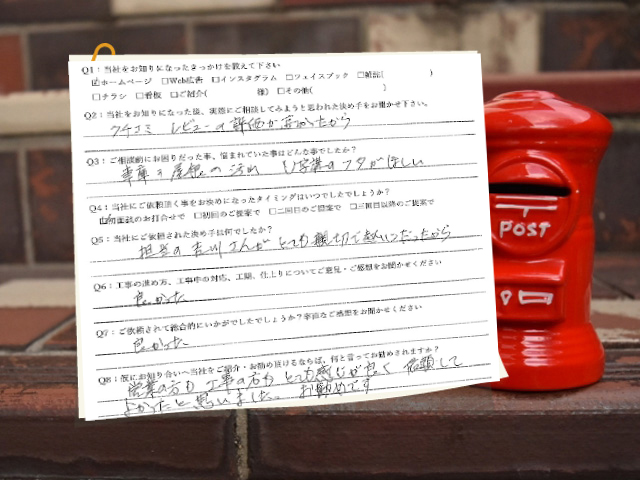 Q1：当社をお知りになったきっかけを教えて下さい
☑ホームページ □Web広告 □インスタグラム □フェイスブック □雑誌( )
□チラシ □看板 □ご紹介( 様) □その他( )
Q2：当社をお知りになった後、実際にご相談してみようと思われた決め手をお聞かせ下さい。
クチコミ レビューの評価が高かったから
Q3：ご相談前にお困りだった事、悩まれていた事はどんな事でしたか？
車庫の屋根の汚れ U字溝のフタがほしい
Q4：当社にご依頼頂く事をお決めになったタイミングはいつでしたでしょうか？
☑初面談のお打合せで □初回のご提案で □二回目のご提案で □三回目以降のご提案で
Q5：当社にご依頼された決め手は何でしたか？
担当の吉川さんがとても親切で だったから
Q6：工事の進め方、工事中の対応、工期、仕上りについてご意見・ご感想をお聞かせください
良かった
Q7：ご依頼されて総合的にいかがでしたでしょうか？率直なご感想をお聞かせください
良かった
Q8：仮にお知り合いへ当社をご紹介・お勧め頂けるならば、何と言ってお勧めされますか？
営業の方も 工事の方も とても感じが良く 依頼して
よかったと思いました。 お勧めです
POST